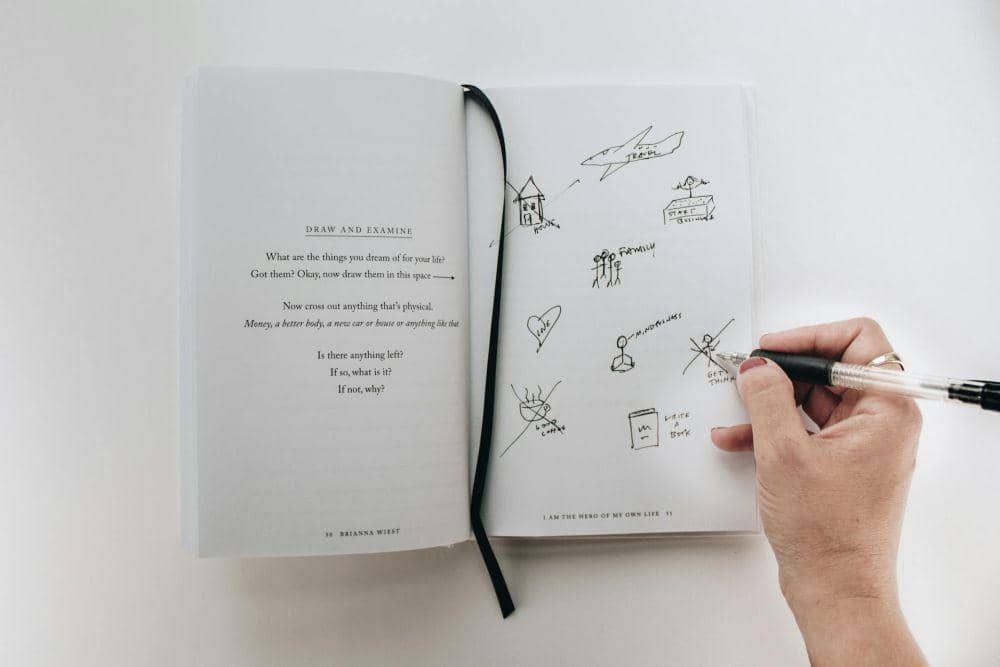 DRAW AND EXAMINE
What are the things you dream of for your life?
Got them? Okay, now draw them in this space
Now cross out anything that's physical.
Money, a better body, a new car or house or anything like that
Is there anything left?
If so, what is it?
If not, why?
50 BRIANNA WIEST
TRAVEL
HOUSE
START
BUSINESS
FAMILY
LOVE
MINDFULNESS
GET
THIN
GOOD
COFFEE
WRITE
A
BOOK
I AM THE HERO OF MY OWN LIFE 51